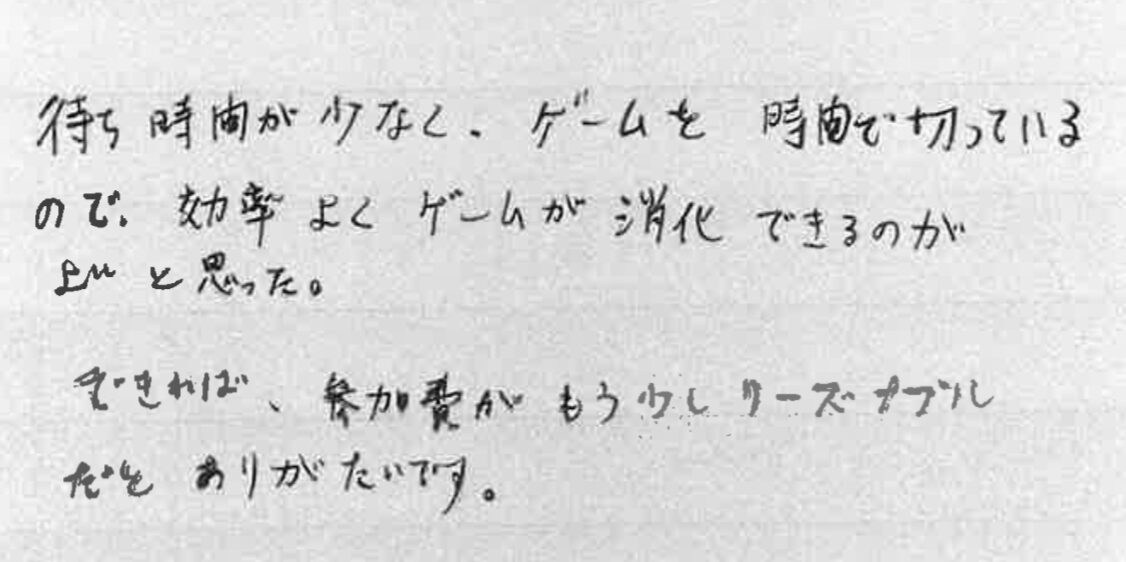 待ち時間が少なく、ゲームを時間で切っている
ので、効率よくゲームが消化できるのが
良いと思った。
できれば、参加費がもう少しリーズナブル
だと ありがたいです。